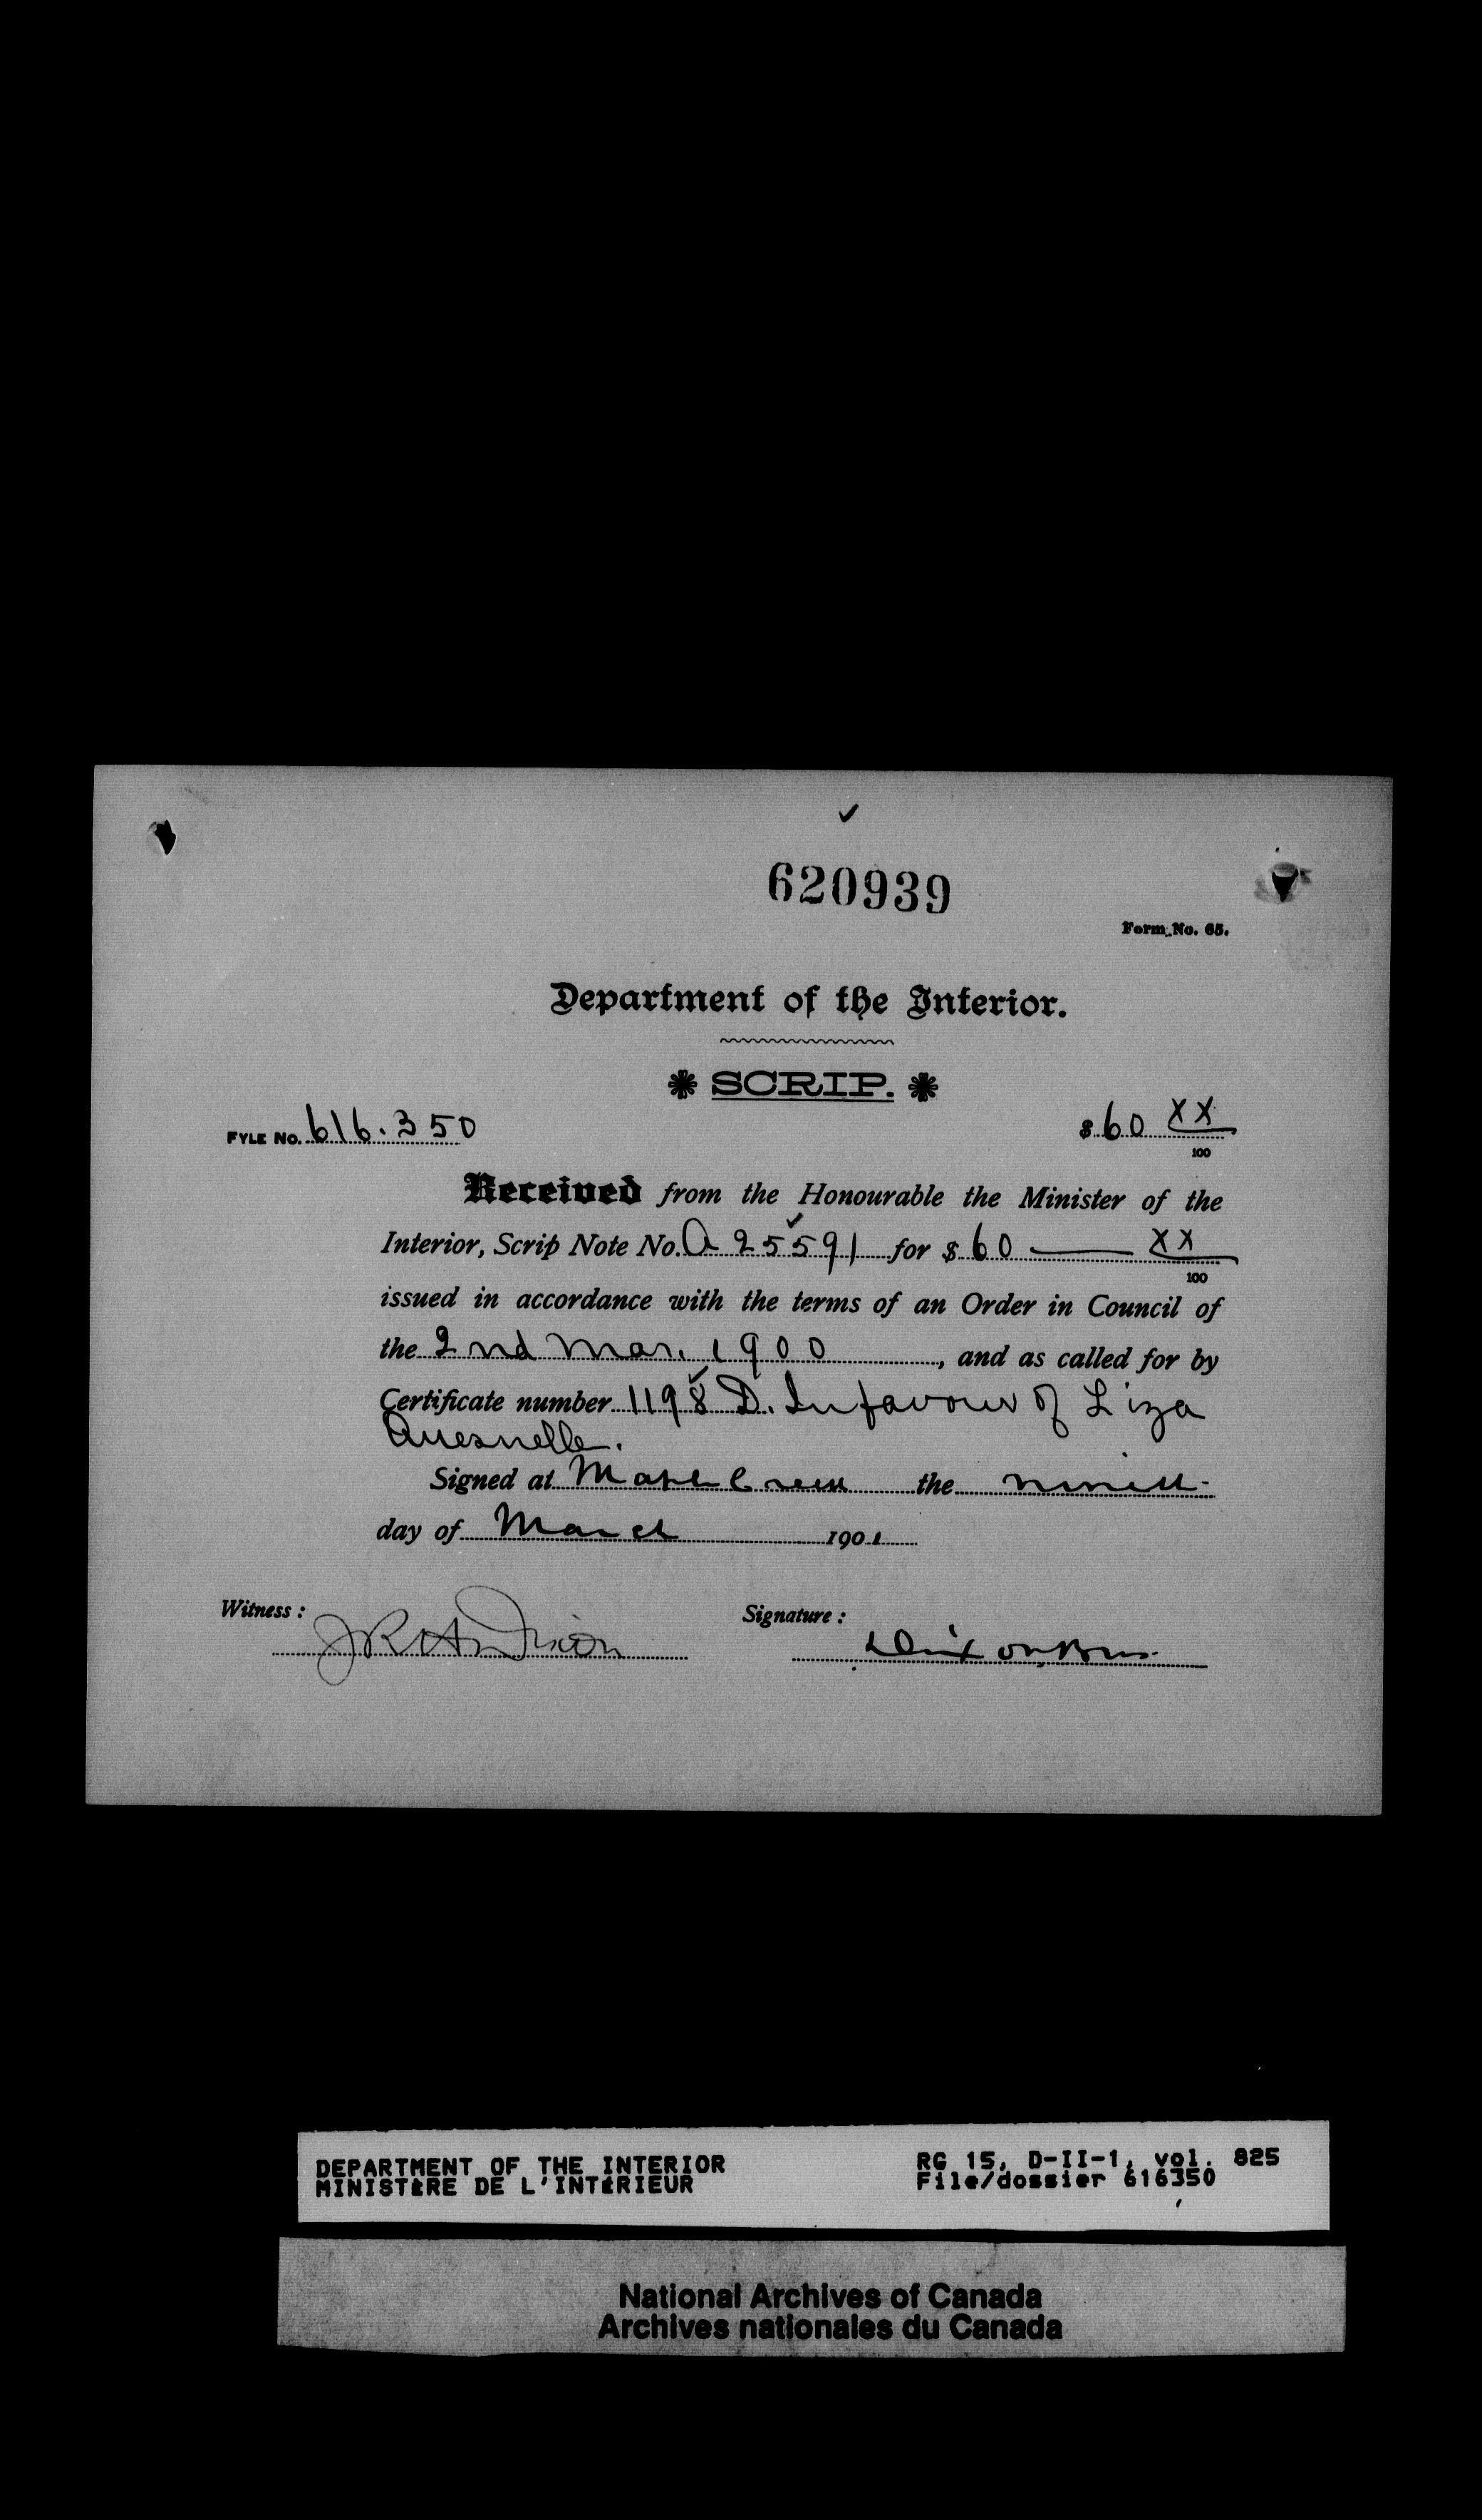 620939
Form No. 65.
Department of the Interior.
SCRIP.
FYLE NO. 616.350 $ 60 XX/100
Received from the Honourable the Minister of the
Interior, Scrip Note No. A 25591 for $ 60 XX/100
issued in accordance with the terms of an Order in Council of
the 2nd Mar. 1900, and as called for by
Certificate number 1198 D. In favour of Liza
Quesnelle.
Signed at Maple Creek the ninth
day of March 1901
Witness : Signature :
Dixon Bros.
DEPARTMENT OF THE INTERIOR RG 15, D-II-1, vol. 825
MINISTÈRE DE L'INTÉRIEUR File/dossier 616350
National Archives of Canada
Archives nationales du Canada